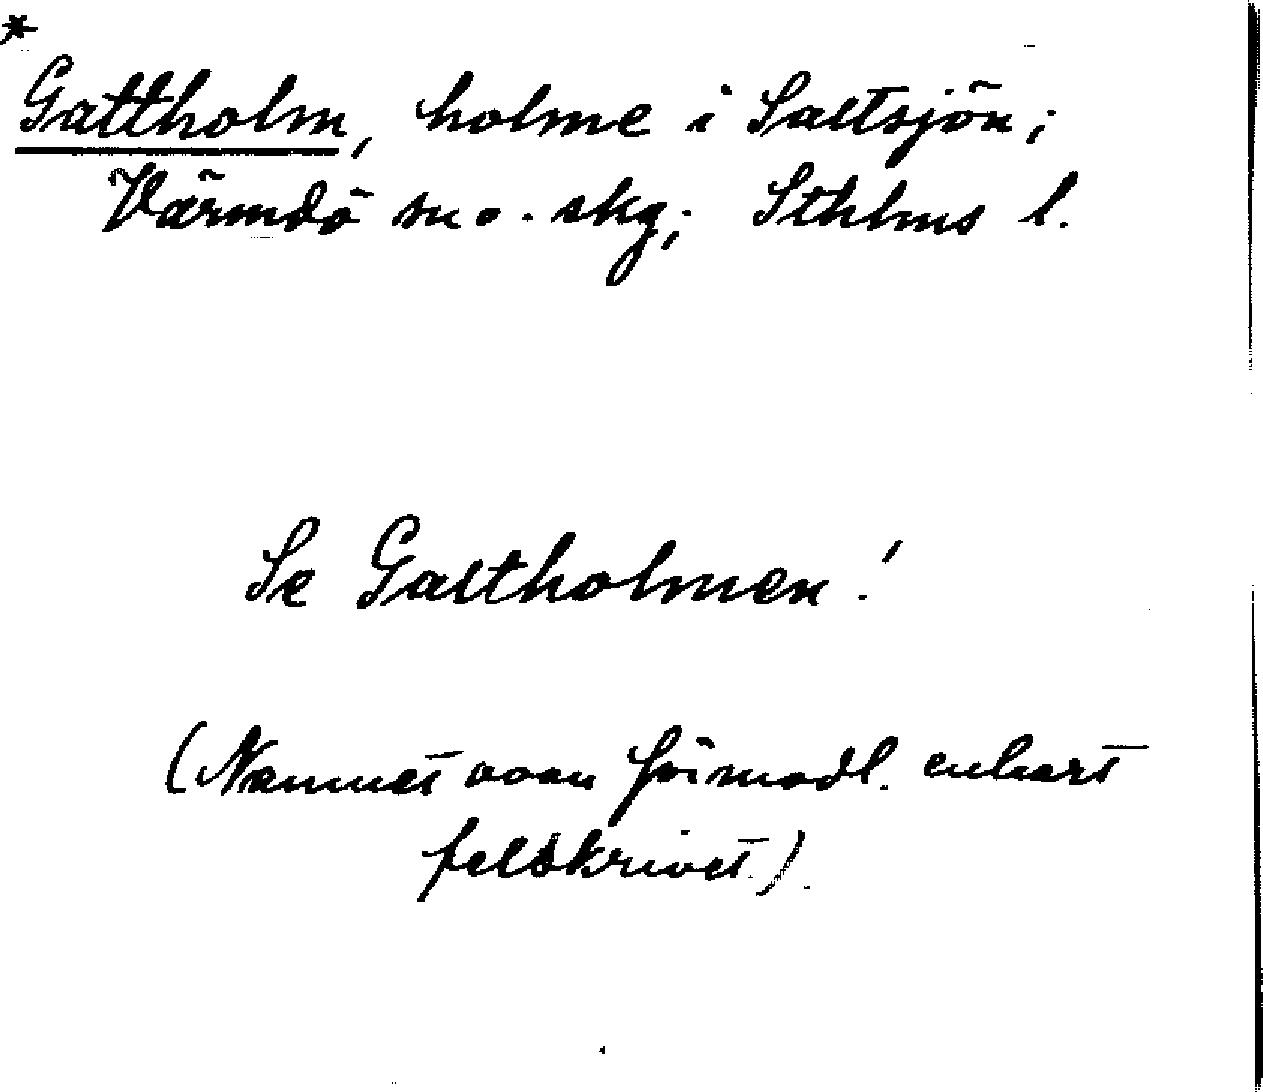 *
Gattholm, holme i Saltsjön;
Värmdö sn o. skg; Sthlms l.
Se Galtholmen!
(Namnet ovan förmodl. enbart
felskrivet.)